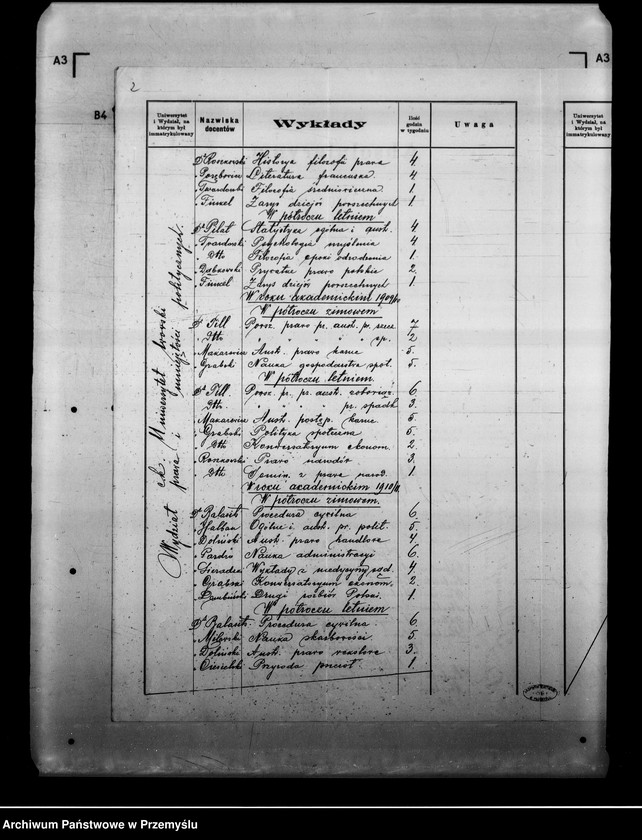 A3
A3
B4
2
Uniwersytet i Wydział, na którym był immatrykulowany
Nazwiska docentów
Wykłady
Ilość godzin w tygodniu
Uwaga
Uniwersytet i Wydział, na którym był immatrykulowany
Wydział c.k. Uniwersytet lwowski
prawa i umiejętności politycznych.
Dr Roszkowski Historya filozofii prawa 4
Porębowicz Literatura francuska 4
Twardowski Filozofia średniowieczna 1
Finkel Zarys dziejów powszechnych 1
W półroczu letniem
Dr Pilat Statystyka ogólna i aust. 4
Twardowski Psychologia myślenia 4
Dtto Filozofia epoki odrodzenia 1
Dąbkowski Prywatne prawo polskie 2
Finkel Zarys dziejów powszechnych 1
W roku akademickim 1909/10
W półroczu zimowem
Dr Till Powsz. prawo pr. aust. pr. rzecz. 7
Dtto " " " sp. 2
Makarewicz Aust. prawo karne 5
Grabski Nauka gospodarstwa społ. 5
W półroczu letniem
Dr Till Powsz. pr. pr. aust. zobowiąz. 6
Dtto " " " pr. spadk. 3
Makarewicz Aust. postęp. karne 5
Grabski Polityka społeczna 5
Dtto Konserwatoryum ekonom. 2
Roszkowski Prawo narodów 3
Dtto Semin. z prawa narod. 1
W roku akademickim 1910/11
W półroczu zimowem
Dr Balasits Procedura cywilna 6
Halban Ogólne i aust. pr. polit. 5
Doliński Aust. prawo handlowe 4
Nauka administracyi 6
Sieradzki Wykłady z medycyny sąd. 4
Grabski Konserwatoryum ekonom. 2
Dembiński Drugi rozbiór Polski 1
W półroczu letniem
Dr Balasits Procedura cywilna 6
Milewski Nauka skarbowości 5
Doliński Aust. prawo wekslowe 3
Ciesielski Przyroda 1
Archiwum Państwowe w Przemyślu